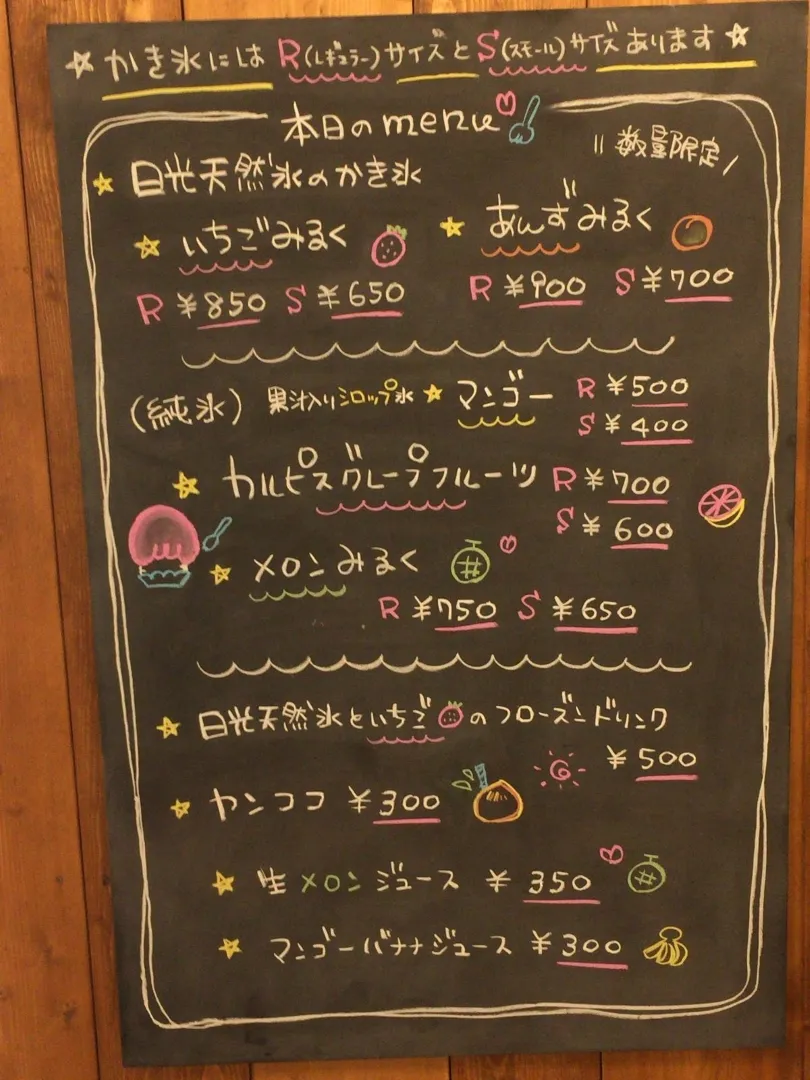 ☆かき氷には R(レギュラー)サイズと S(スモール)サイズあります☆
本日のmenu
\\ 数量限定 /
★日光天然氷のかき氷
★いちごみるく ★あんずみるく
R ¥850 S ¥650 R ¥900 S ¥700
(純氷) 果汁入りシロップ氷 ★マンゴー R ¥500
S ¥400
★カルピスグレープフルーツ R ¥700
S ¥600
★メロンみるく
R ¥750 S ¥650
★日光天然氷といちごのフローズンドリンク
¥500
★ヤンココ ¥300
★生メロンジュース ¥350
★マンゴーバナナジュース ¥300